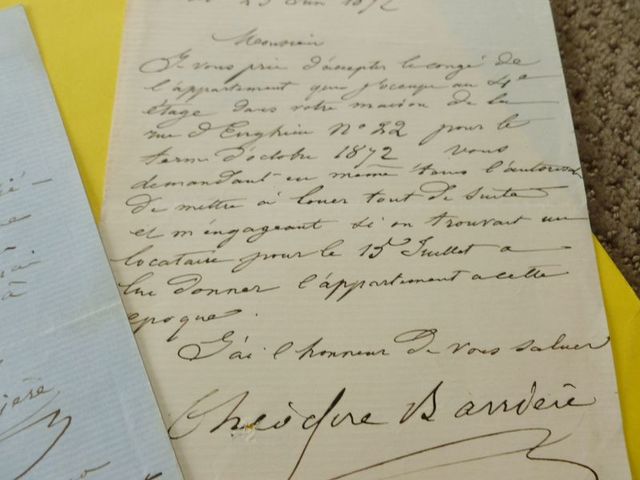 25 Juin 1872
Monsieur
Je vous prie d'accepter le congé de
l'appartement que j'occupe au 4e
étage dans votre maison de la
rue d'Enghien No 22 pour le
terme d'octobre 1872 vous
demandant en même temps l'autorisation
de mettre à louer tout de suite
et m'engageant si on trouvait un
locataire pour le 15 Juillet a
lui donner l'appartement a cette
epoque.
J'ai l'honneur de vous saluer
Théodore Barrière
ière